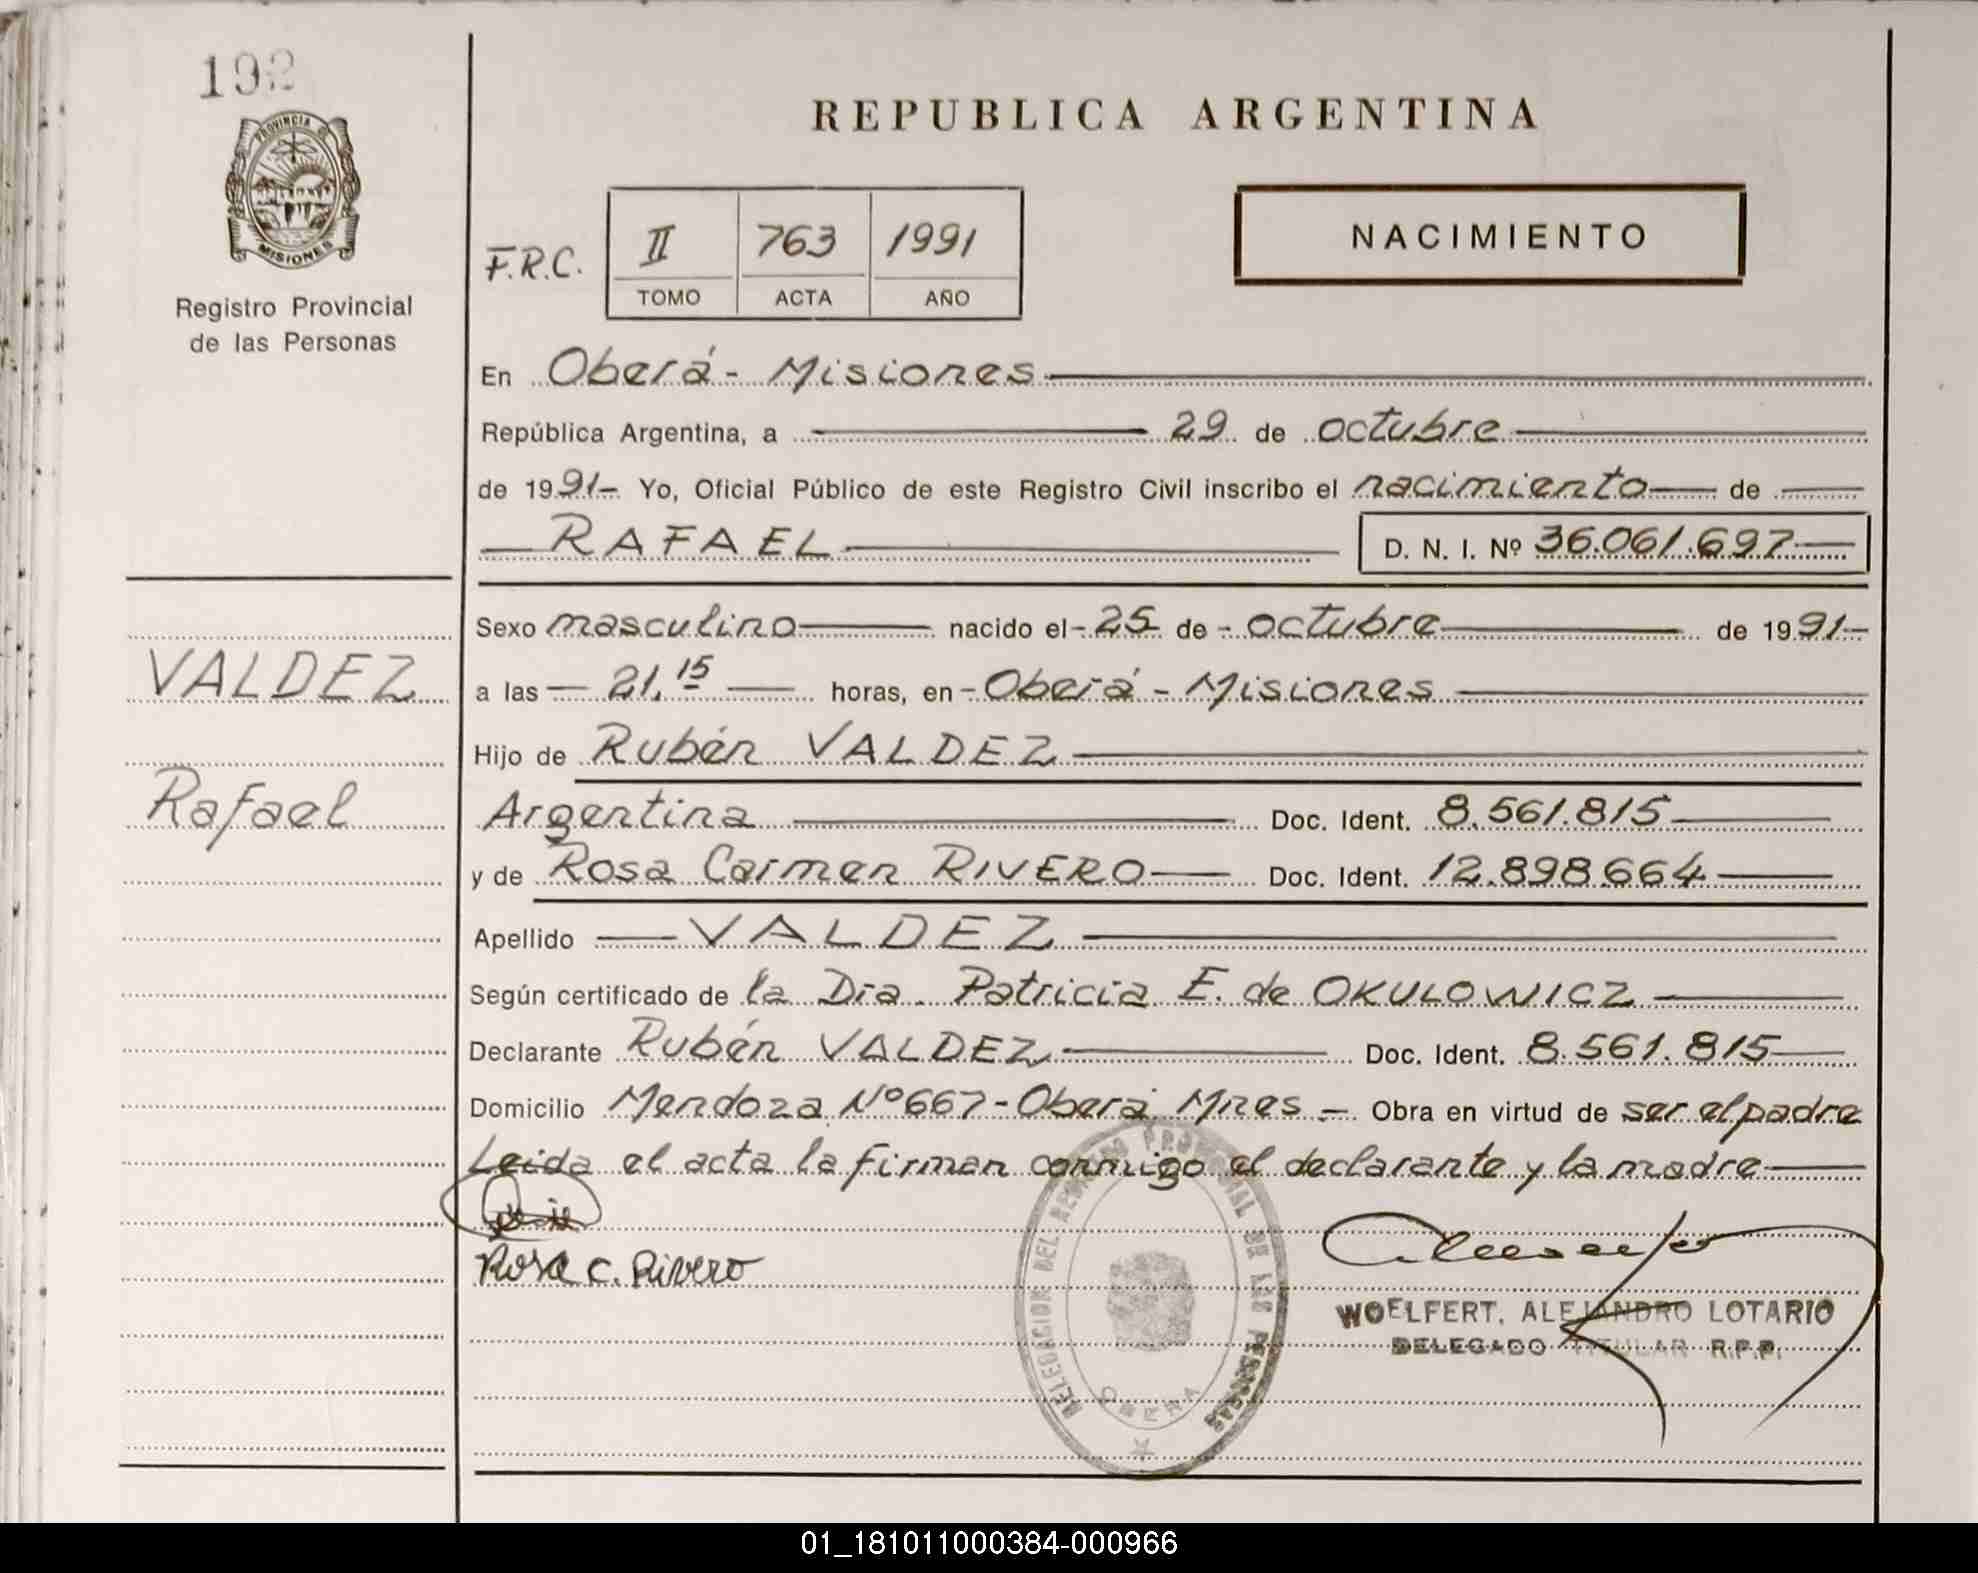 192
PROVINCIA DE
MISIONES
Registro Provincial
de las Personas
VALDEZ
Rafael
REPUBLICA ARGENTINA
F.R.C.
II 763 1991
TOMO ACTA AÑO
NACIMIENTO
En Oberá - Misiones
República Argentina, a 29 de octubre
de 1991- Yo, Oficial Público de este Registro Civil inscribo el nacimiento de
RAFAEL D. N. I. Nº 36.061.697
Sexo masculino nacido el - 25 de - octubre de 1991-
a las 21,15 horas, en - Oberá - Misiones
Hijo de Rubén VALDEZ
Argentina Doc. Ident. 8.561.815
y de Rosa Carmen RIVERO Doc. Ident. 12.898.664
Apellido VALDEZ
Según certificado de la Dra. Patricia E. de OKULOWICZ
Declarante Rubén VALDEZ Doc. Ident. 8.561.815
Domicilio Mendoza Nº 667 - Oberá Mnes - Obra en virtud de ser el padre
Leida el acta la firman conmigo el declarante y la madre
Rosa C. Rivero
DELEGACION DEL REGISTRO PROVINCIAL DE LAS PERSONAS
OBERA
WOELFERT, ALEJANDRO LOTARIO
DELEGADO TITULAR R.P.P.
01_181011000384-000966